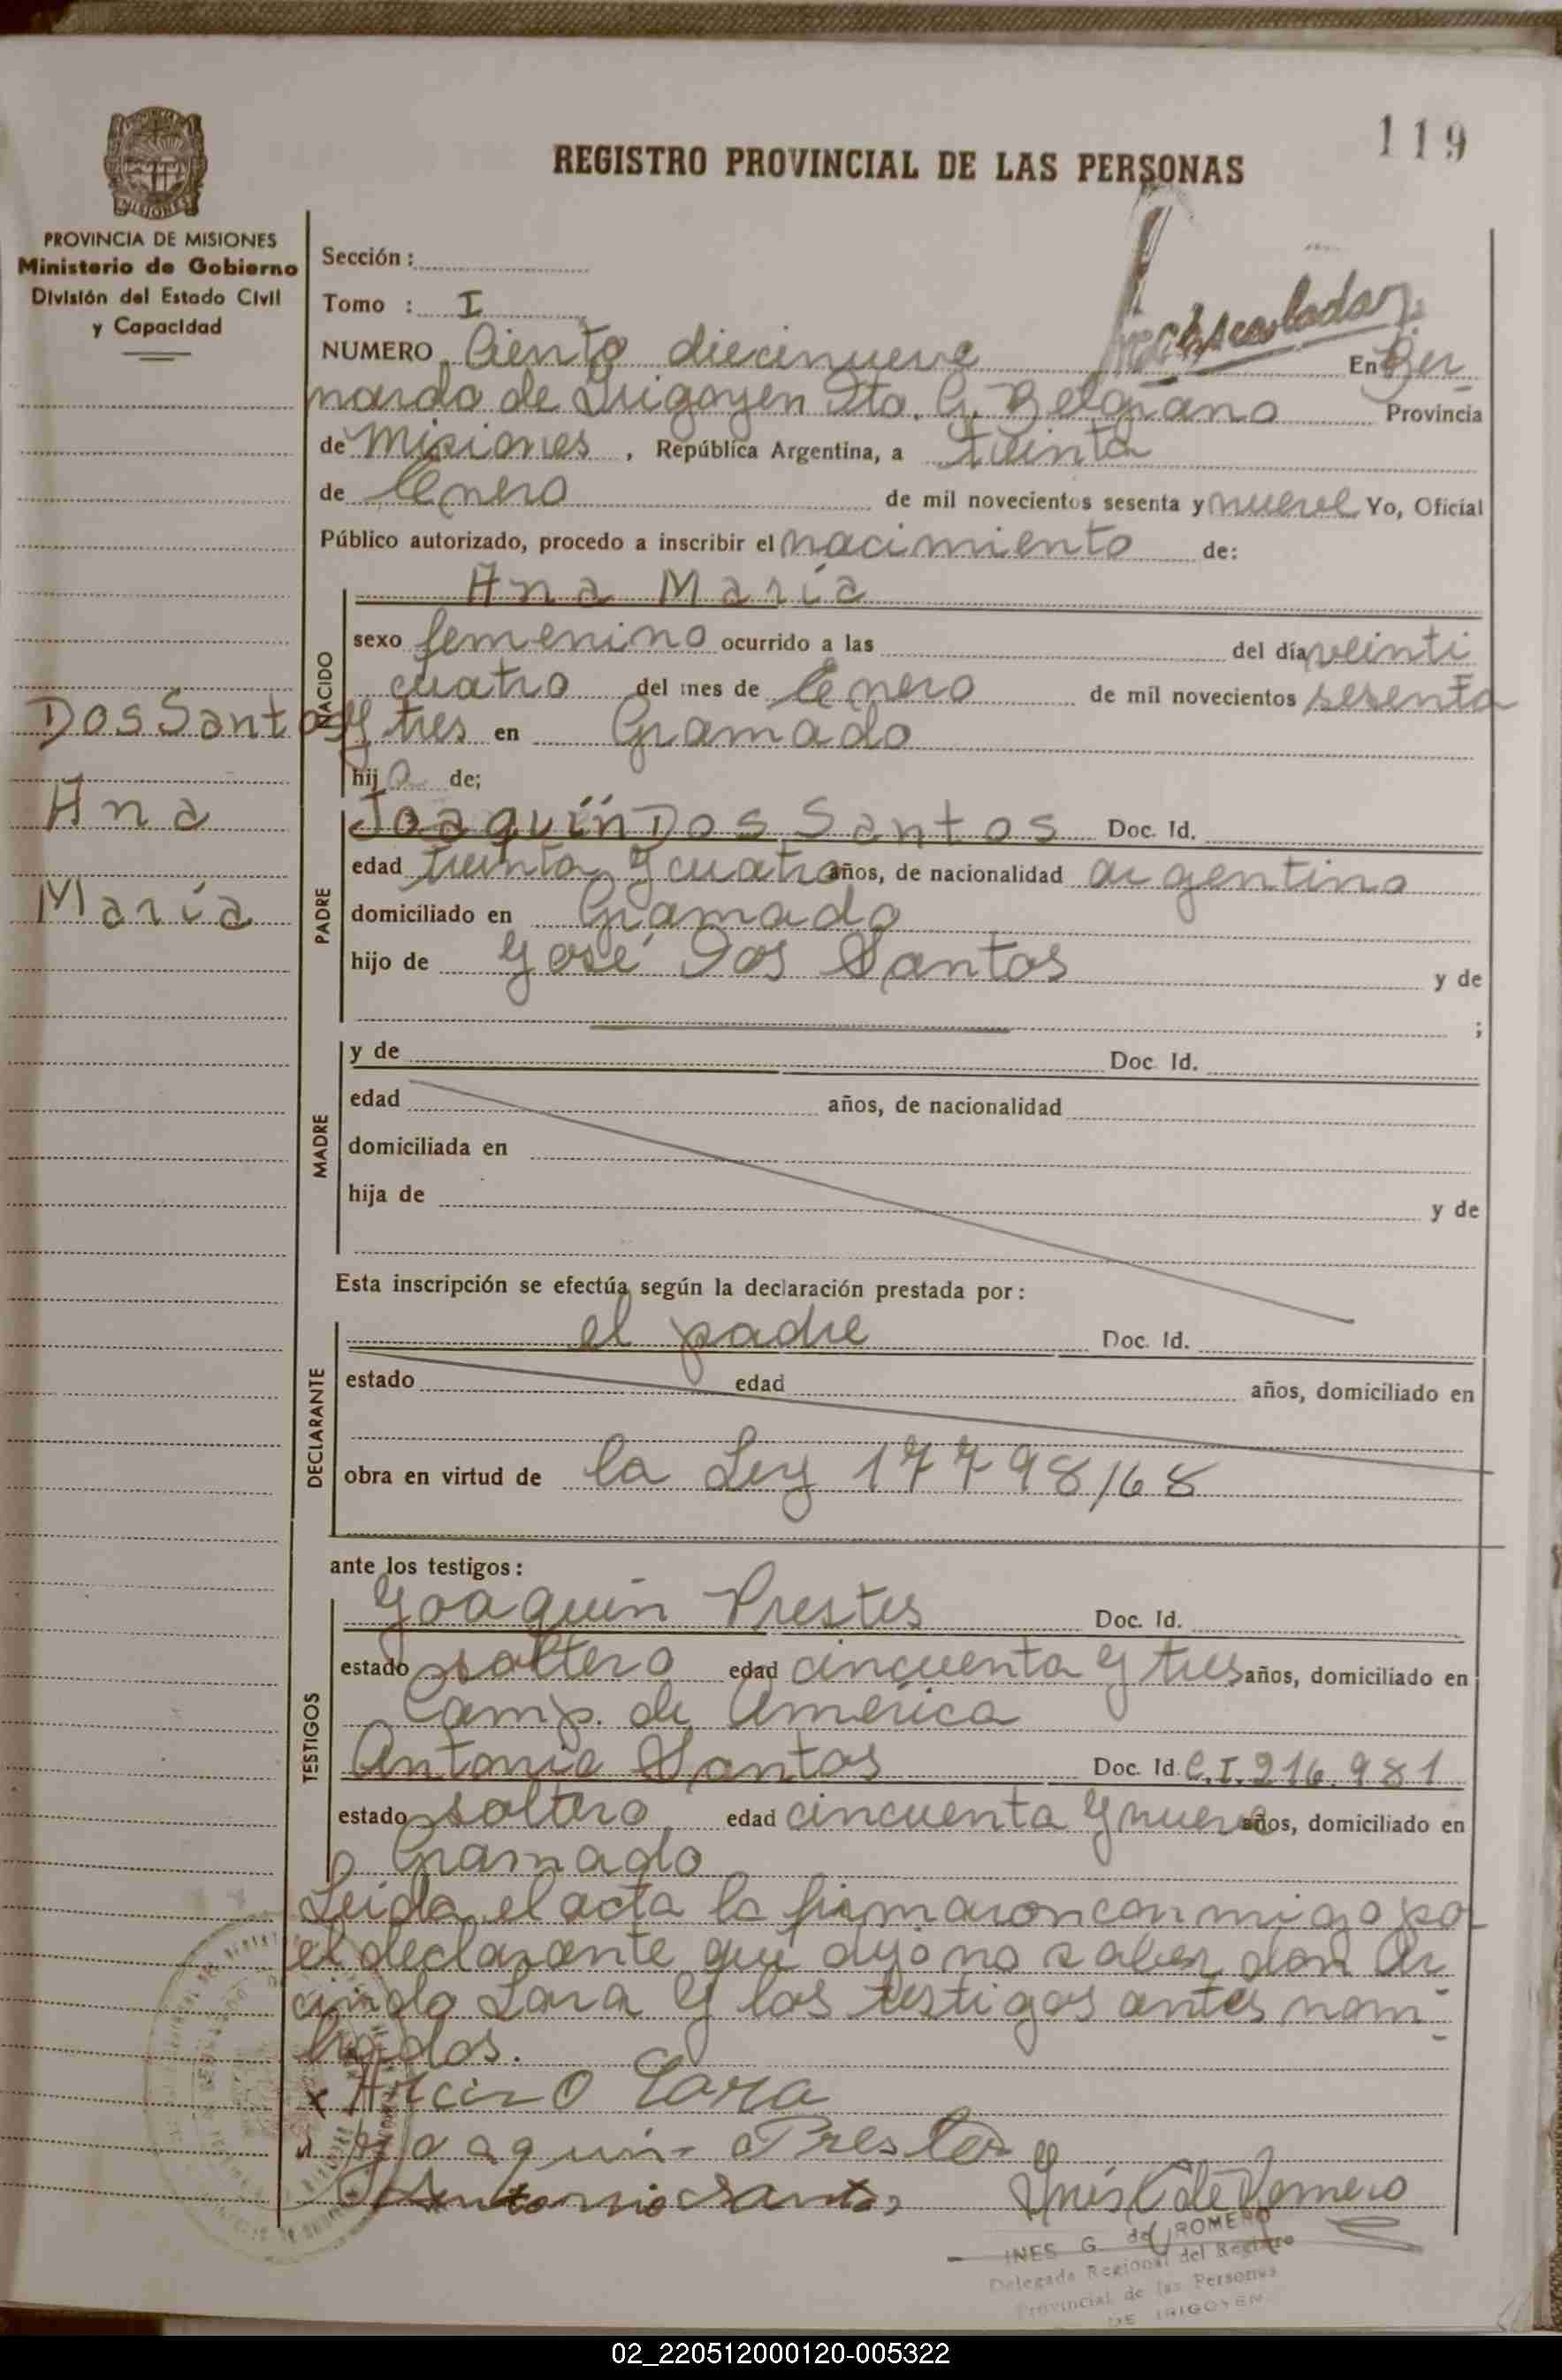 119
REGISTRO PROVINCIAL DE LAS PERSONAS
PROVINCIA DE MISIONES
Ministerio de Gobierno
División del Estado Civil
y Capacidad
Sección :
Tomo : I
NUMERO Ciento diecinueve En Ber
nardo de Irigoyen Dto. G. Belgrano Provincia
de Misiones , República Argentina, a treinta
de Enero de mil novecientos sesenta y nueve Yo, Oficial
Público autorizado, procedo a inscribir el nacimiento de:
Ana María
NACIDO
sexo femenino ocurrido a las del día veinti
cuatro del mes de Enero de mil novecientos sesenta
y tres en Gramado
hija de;
Dos Santos
Ana
María
PADRE
Joaquín Dos Santos Doc. Id.
edad treinta y cuatro años, de nacionalidad argentino
domiciliado en Gramado
hijo de José Dos Santos y de
;
MADRE
y de Doc. Id.
edad años, de nacionalidad
domiciliada en
hija de y de
Esta inscripción se efectúa según la declaración prestada por :
DECLARANTE
el padre Doc. Id.
estado edad años, domiciliado en
obra en virtud de la Ley 17798/68
ante los testigos :
TESTIGOS
Joaquín Prestes Doc. Id.
estado soltero edad cincuenta y tres años, domiciliado en
Camp. de América
Antonio Santos Doc. Id. C.I. 216.981
estado soltero edad cincuenta y nueve años, domiciliado en
Gramado
Leida el acta la firmaron conmigo po
el declarante que dijo no saber don Ar
cindo Lara y los testigos antes nom-
brados.
x Arcino Lara
Joaquin Prestes
Antonio Santos
Inés G de Romero
INES G. de ROMERO
Delegada Regional del Registro
Provincial de las Personas
DE IRIGOYEN
02_220512000120-005322